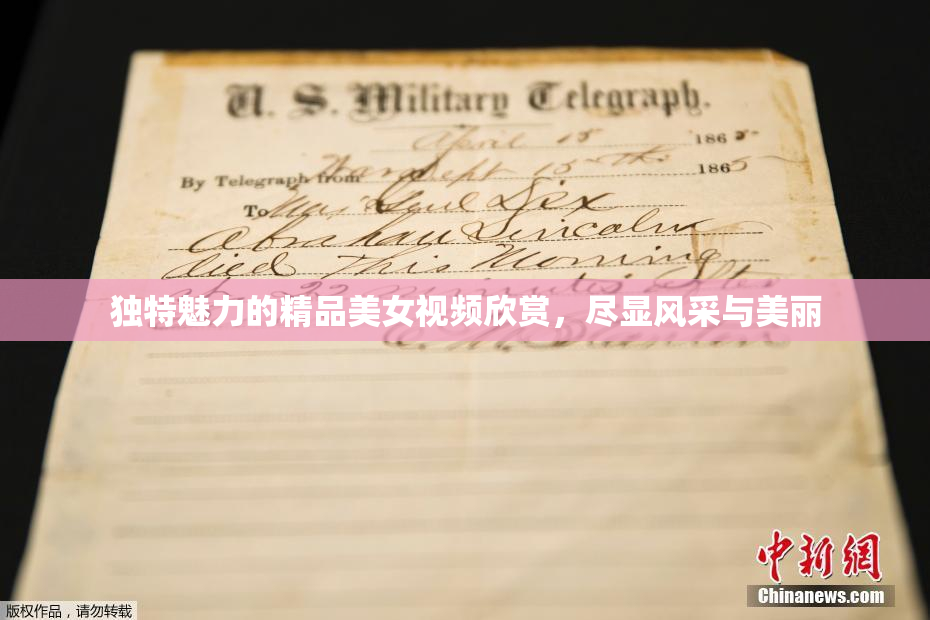 U. S. Military Telegraph.
April 15 1865
By Telegraph from War Dept 15th 1865
To Maj Genl Dix
Abraham Lincoln
died This Morning
at 22 minutes after
独特魅力的精品美女视频欣赏，尽显风采与美丽
中新网
Chinanews.com
版权作品，请勿转载